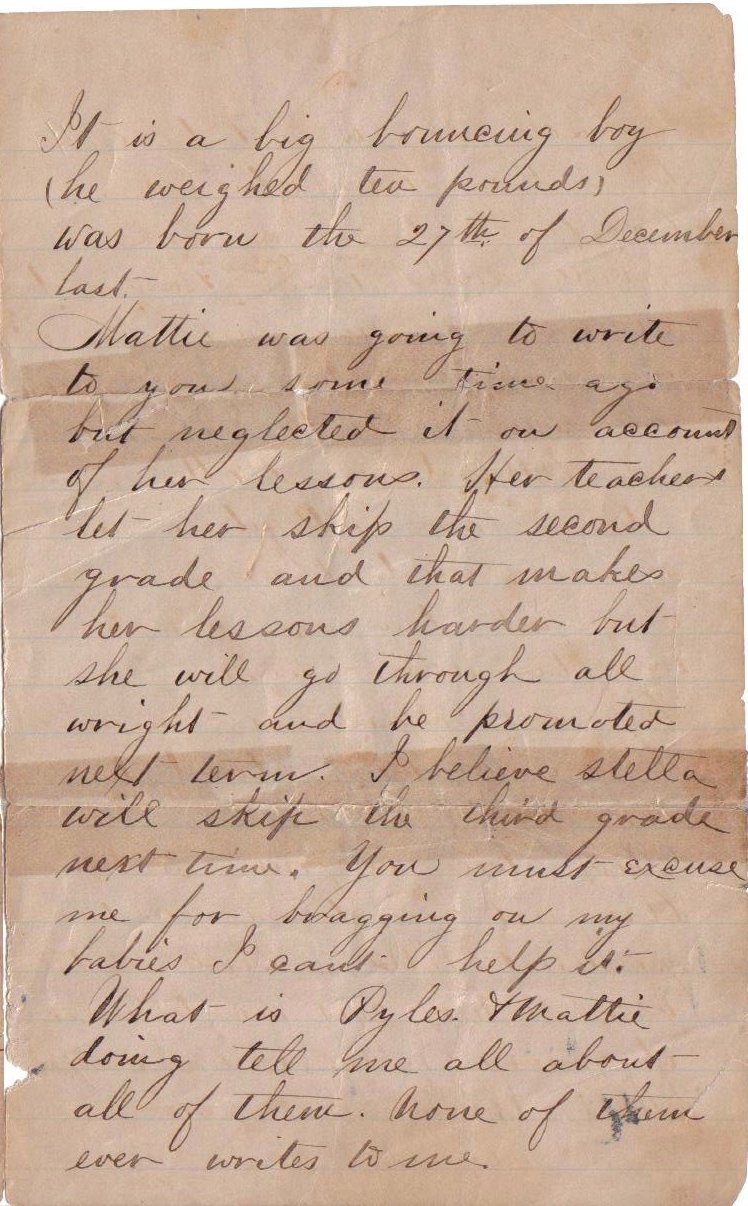 It is a big bouncing boy
(he weighed ten pounds)
was born the 27th. of December
last.
Mattie was going to write
to you some time ago
but neglected it on account
of her lessons. Her teachers
let her skip the second
grade and that makes
her lessons harder but
she will go through all
wright and be promoted
next term. I believe stella
will skip the third grade
next time. You must excuse
me for bragging on my
babies I cant help it.
What is Pyles. & Mattie
doing tell me all about
all of them. None of them
ever writes to me.